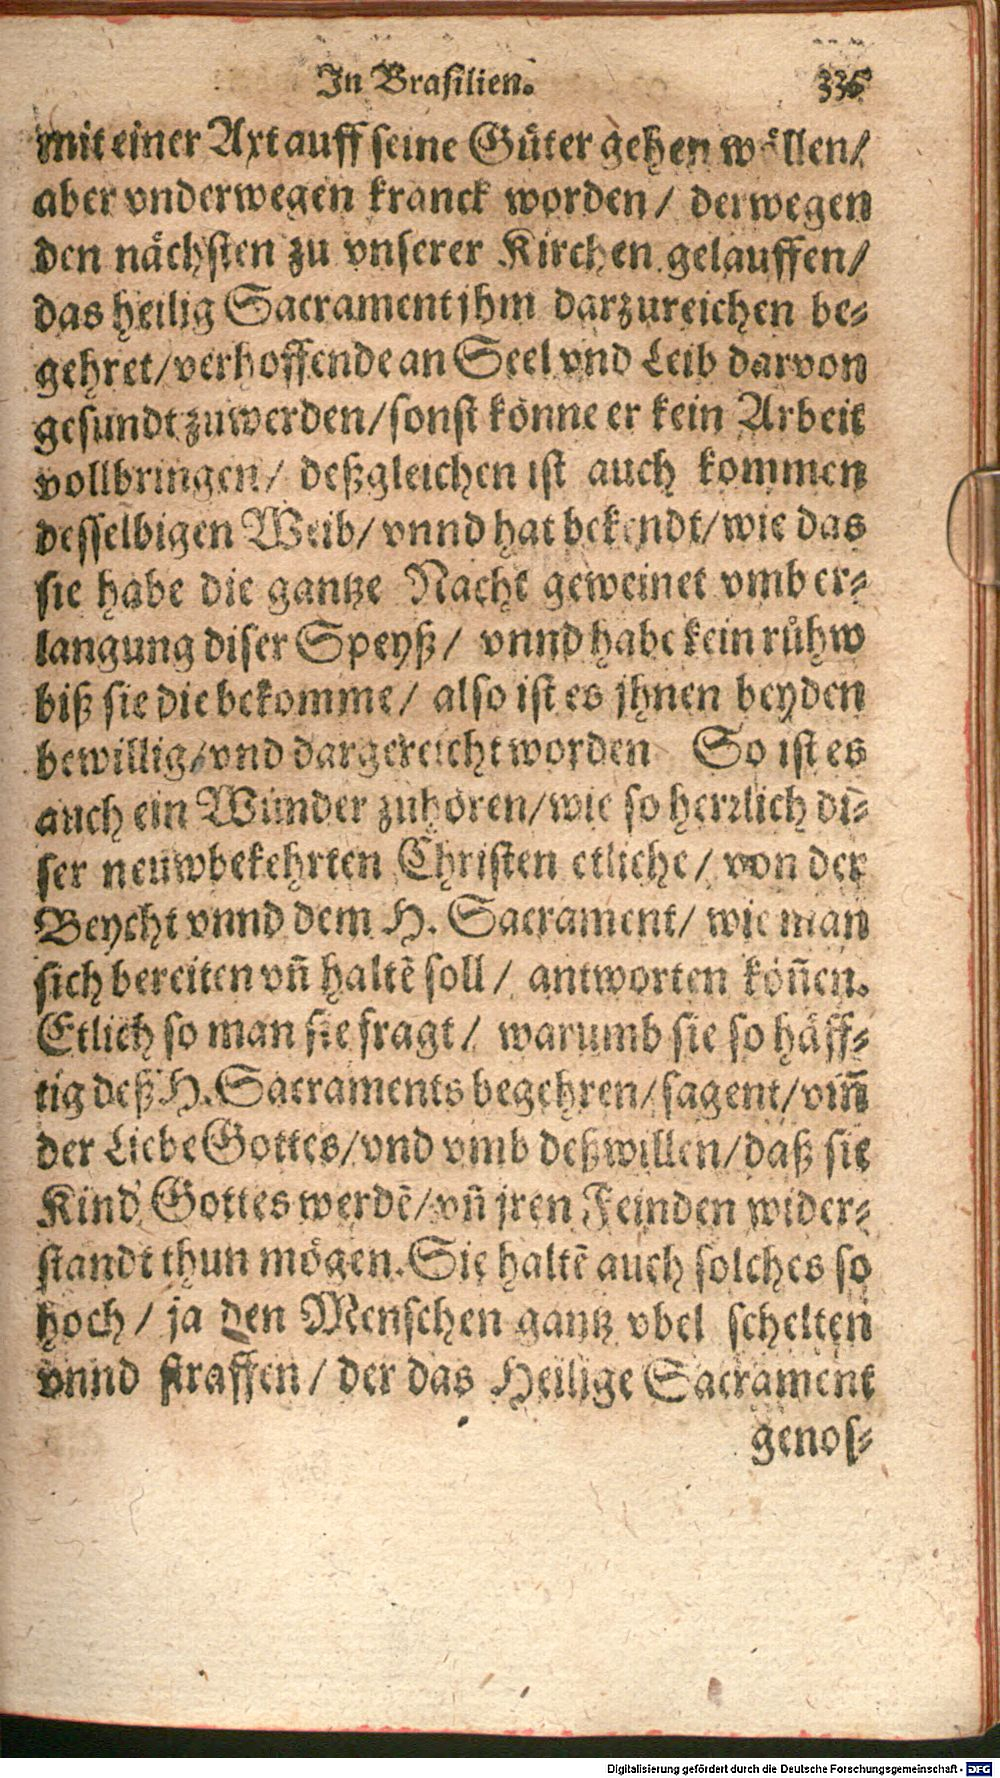 In Brasilien. 335
mit einer Axt auff seine Güter gehen wöllen/
aber vnderwegen kranck worden/ derwegen
den nächsten zu vnserer Kirchen gelauffen/
das heilig Sacrament jhm darzureichen be-
gehret/verhoffende an Seel vnd Leib darvon
gesundt zuwerden/sonst könne er kein Arbeit
vollbringen/ deßgleichen ist auch kommen
desselbigen Weib/ vnnd hat bekendt/wie das
sie habe die gantze Nacht geweinet vmb er-
langung diser Speyß/ vnnd habe kein rühw
biß sie die bekomme/ also ist es jhnen beyden
bewillig/vnd dargereicht worden So ist es
auch ein Wunder zuhören/wie so herrlich di-
ser neuwbekehrten Christen etliche/ von der
Beycht vnnd dem H. Sacrament/ wie man
sich bereiten vn̄ haltē soll/ antworten kön̄en.
Etlich so man sie fragt/ warumb sie so häff-
tig deß H. Sacraments begehren/sagent/vm̄
der Liebe Gottes/vnd vmb deßwillen/daß sie
Kind Gottes werdē/vn̄ jren Feinden wider-
standt thun mögen. Sie haltē auch solches so
hoch/ ja den Menschen gantz vbel schelten
vnnd straffen/ der das Heilige Sacrament
genos-
Digitalisierung gefördert durch die Deutsche Forschungsgemeinschaft - DFG